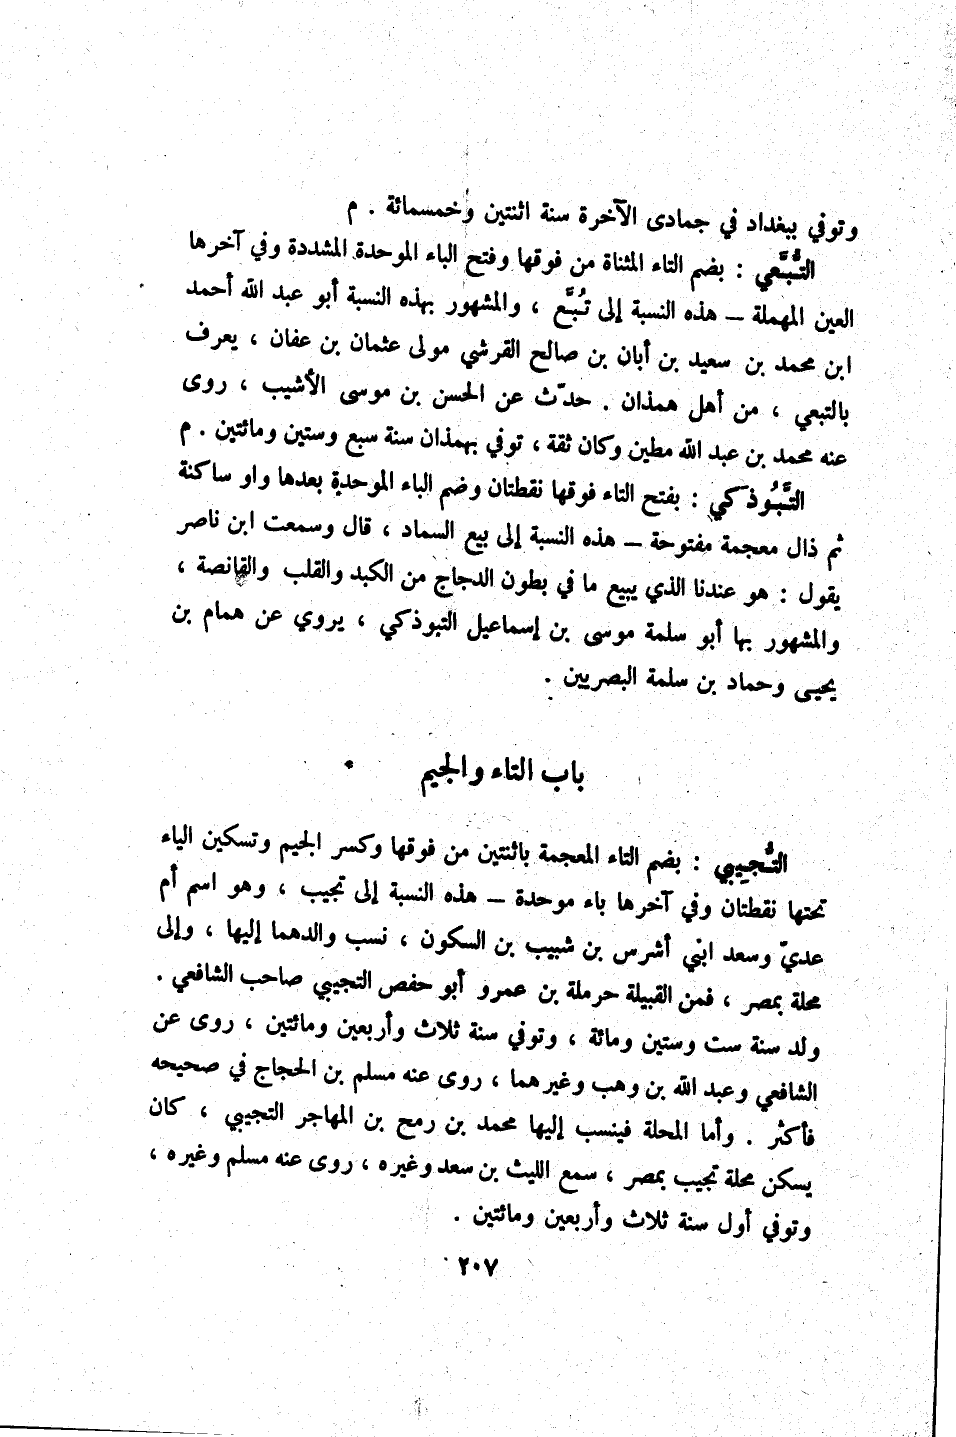 وتوفي ببغداد في جمادى الآخرة سنة اثنتين وخمسمائة . م
التُّبَّعي : بضم التاء المثناة من فوقها وفتح الباء الموحدة المشددة وفي آخرها
العين المهملة – هذه النسبة إلى تُبَّع ، والمشهور بهذه النسبة أبو عبد الله أحمد
ابن محمد بن سعيد بن أبان بن صالح القرشي مولى عثمان بن عفان ، يعرف
بالتبعي ، من أهل همذان . حدّث عن الحسن بن موسى الأشيب ، روى
عنه محمد بن عبد الله مطين وكان ثقة ، توفي بهمذان سنة سبع وستين ومائتين . م
التَّبُوذكي : بفتح التاء فوقها نقطتان وضم الباء الموحدة بعدها واو ساكنة
ثم ذال معجمة مفتوحة – هذه النسبة إلى بيع السماد ، قال وسمعت ابن ناصر
يقول : هو عندنا الذي يبيع ما في بطون الدجاج من الكبد والقلب والقانصة ،
والمشهور بها أبو سلمة موسى بن إسماعيل التبوذكي ، يروي عن همام بن
يحيى وحماد بن سلمة البصريين .
باب التاء والجيم
التُّجِيبي : بضم التاء المعجمة باثنتين من فوقها وكسر الجيم وتسكين الياء
تحتها نقطتان وفي آخرها باء موحدة – هذه النسبة إلى تجيب ، وهو اسم أم
عديّ وسعد ابني أشرس بن شبيب بن السكون ، نسب والدهما إليها ، وإلى
محلة بمصر ، فمن القبيلة حرملة بن عمرو أبو حفص التجيبي صاحب الشافعي .
ولد سنة ست وستين ومائة ، وتوفي سنة ثلاث وأربعين ومائتين ، روى عن
الشافعي وعبد الله بن وهب وغيرهما ، روى عنه مسلم بن الحجاج في صحيحه
فأكثر . وأما المحلة فينسب إليها محمد بن رمح بن المهاجر التجيبي ، كان
يسكن محلة تجيب بمصر ، سمع الليث بن سعد وغيره ، روى عنه مسلم وغيره ،
وتوفي أول سنة ثلاث وأربعين ومائتين .
٢٠٧